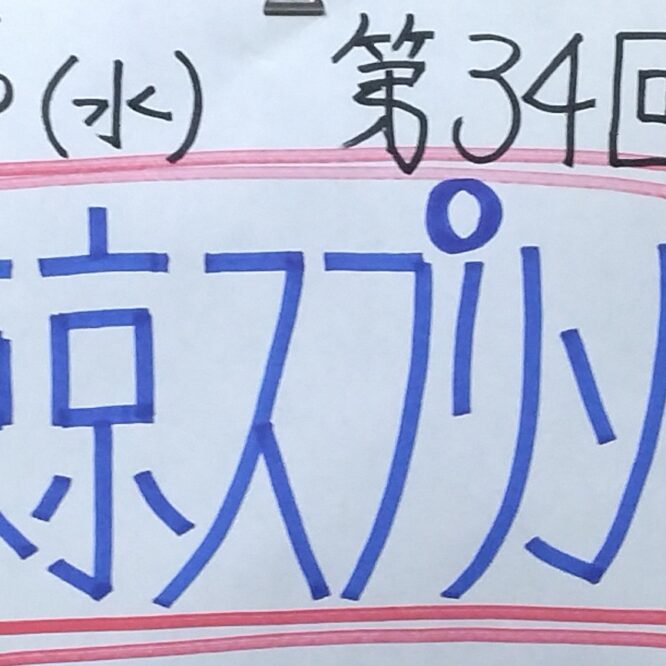 (水) 第34回
京スプリン